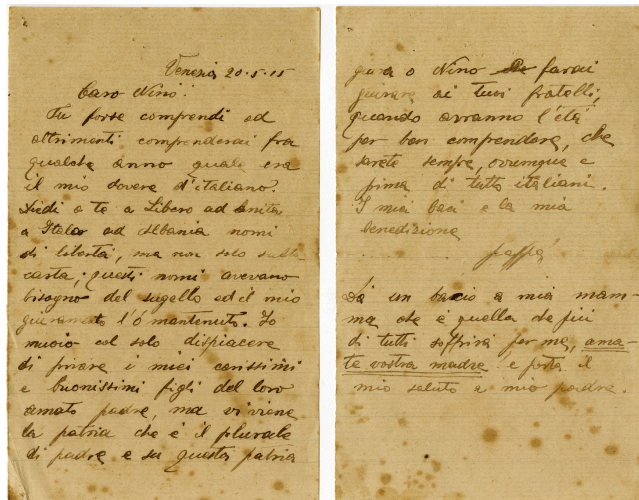 Venezia 20-5-15
Caro Nino!
Tu forse comprendi od
altrimenti comprenderai fra
qualche anno quale era
il mio dovere d'italiano.
Diedi a te a Libero ad Anita
a Italo ad Albania nomi
di libertà, ma non solo sulla
carta; questi nomi avevano
bisogno del sugello ed il mio
giuramento l'ò mantenuto. Io
muoio col solo dispiacere
di privare i miei carissimi
e buonissimi figli del loro
amato padre, ma vi viene
la patria che è il plurale
di padre e su questa patria
giura o Nino farai
giurare ai tuoi fratelli,
quando avranno l'età
per ben comprendere, che
sarete sempre, ovunque e
prima di tutto italiani.
I miei baci e la mia
benedizione
pappà
Dà un bacio a mia mam-
ma che è quella che più
di tutti soffrirà per me, ama-
te vostra madre e porta il
mio saluto a mio padre.